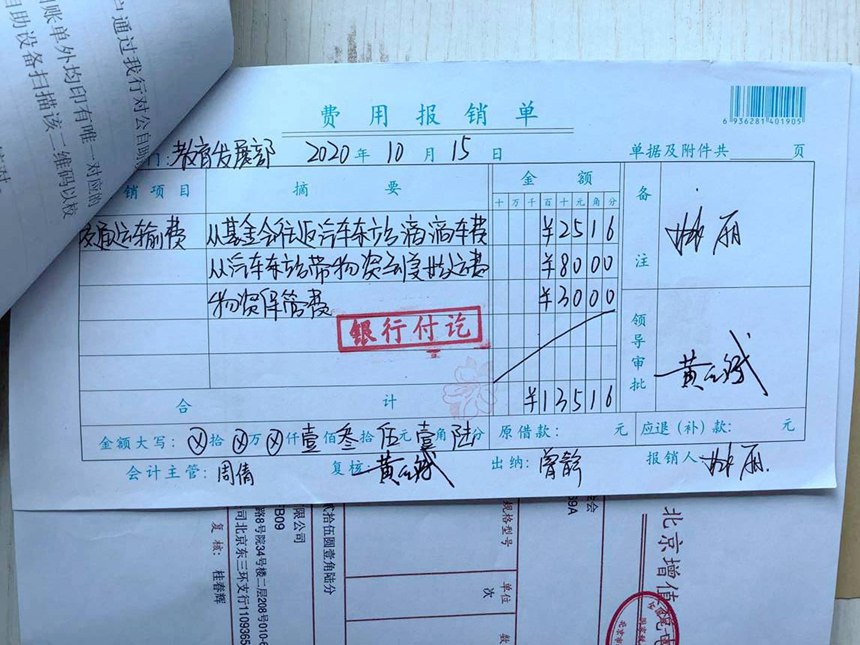 户通过我行对公自助
账单外均印有唯一对应的
自助设备扫描该二维码以校
费用报销单
6 936281 401905
门: 教育发展部 2020年10月15日 单据及附件共 页
销项目 摘要 金额 备注
十万千百十元角分
交通运输费 从基金会往返汽车东站滴滴车费 ¥2516
从汽车东站带物资到度姓运费 ¥8000
物资保管费 ¥3000
银行付讫
领导审批
合计 ¥13516
金额大写: ⊗拾⊗万⊗仟壹佰叁拾伍元壹角陆分 原借款: 元 应退(补)款: 元
会计主管: 周倩 复核: 出纳: 报销人: 丽
北京增值
规格型号
单位
次
数
贰拾伍圆壹角陆分
有限公司
路8号院34号楼二层208号010-6
司北京东三环支行1109365
复核: 桂春辉